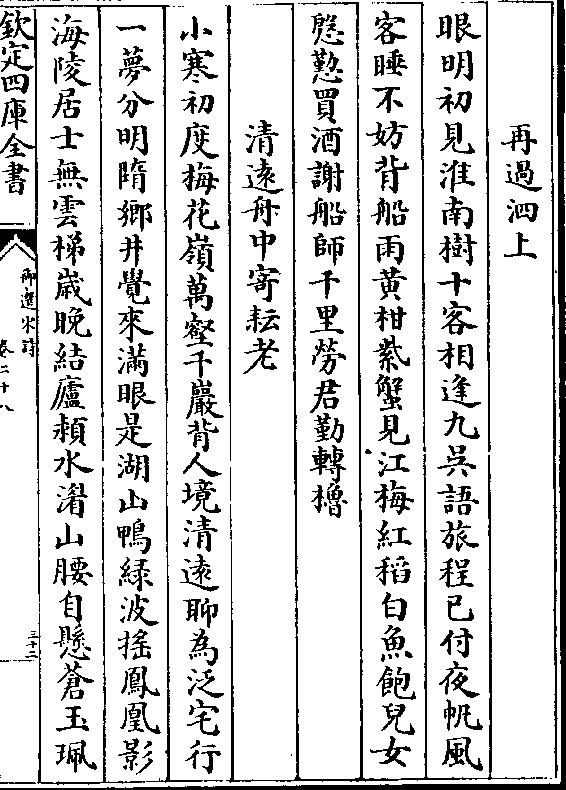 再過泗上
眼明初見淮南樹十客相逢九呉語旅程已付夜帆風
客睡不妨背船雨黄柑紫蟹見江梅紅稻白魚飽兒女
慇懃買酒謝船師千里勞君勤轉櫓
清遠舟中寄耘老
小寒初度梅花嶺萬壑千巖背人境清遠聊為泛宅行
一夢分明隋鄉井覺來滿眼是湖山鴨緑波揺鳳凰影
海陵居士無雲梯嵗晚結廬潁水湄山腰自懸蒼玉珮
欽定四庫全書
御選宋詩
卷二十八
三十二